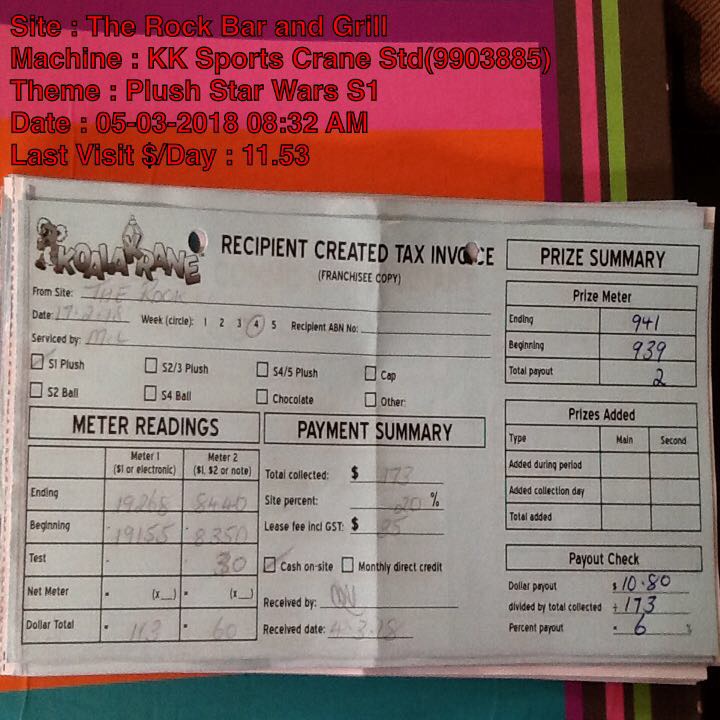 Site : The Rock Bar and Grill
Machine : KK Sports Crane Std(9903885)
Theme : Plush Star Wars S1
Date : 05-03-2018 08:32 AM
Last Visit $/Day : 11.53
KOALA KRANE
RECIPIENT CREATED TAX INVOICE
(FRANCHISEE COPY)
From Site: THE ROCK
Date: 17-2-18 Week (circle): 1 2 3 4 5 Recipient ABN No:
Serviced by:
S1 Plush S2/3 Plush S4/5 Plush Cap
S2 Ball S4 Ball Chocolate Other:
METER READINGS
Meter 1 Meter 2
($1 or electronic) ($1, $2 or note)
Ending 19268 8440
Beginning 19155 8350
Test - 30
Net Meter = (x__) = (x__)
Dollar Total = 113 = 60
PAYMENT SUMMARY
Total collected: $ 173
Site percent: 20 %
Lease fee incl GST: $ 35
Cash on-site Monthly direct credit
Received by:
Received date: 4-3-18
PRIZE SUMMARY
Prize Meter
Ending 941
Beginning 939
Total payout 2
Prizes Added
Type Main Second
Added during period
Added collection day
Total added
Payout Check
Dollar payout $ 10.80
divided by total collected ÷ 173
Percent payout = 6 %